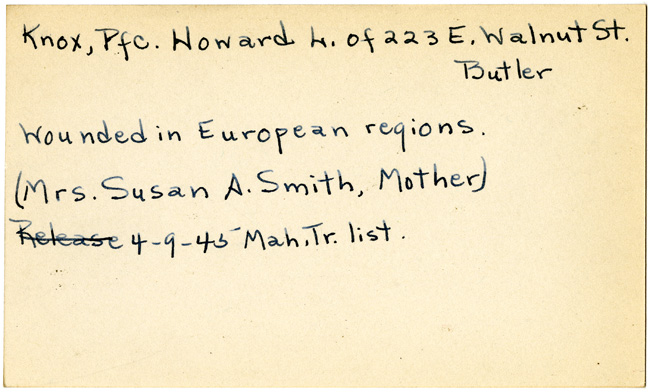 Knox, Pfc. Howard L. of 223 E. Walnut St.
Butler
Wounded in European regions.
(Mrs. Susan A. Smith, Mother)
Release 4-9-45 Mah. Tr. list.